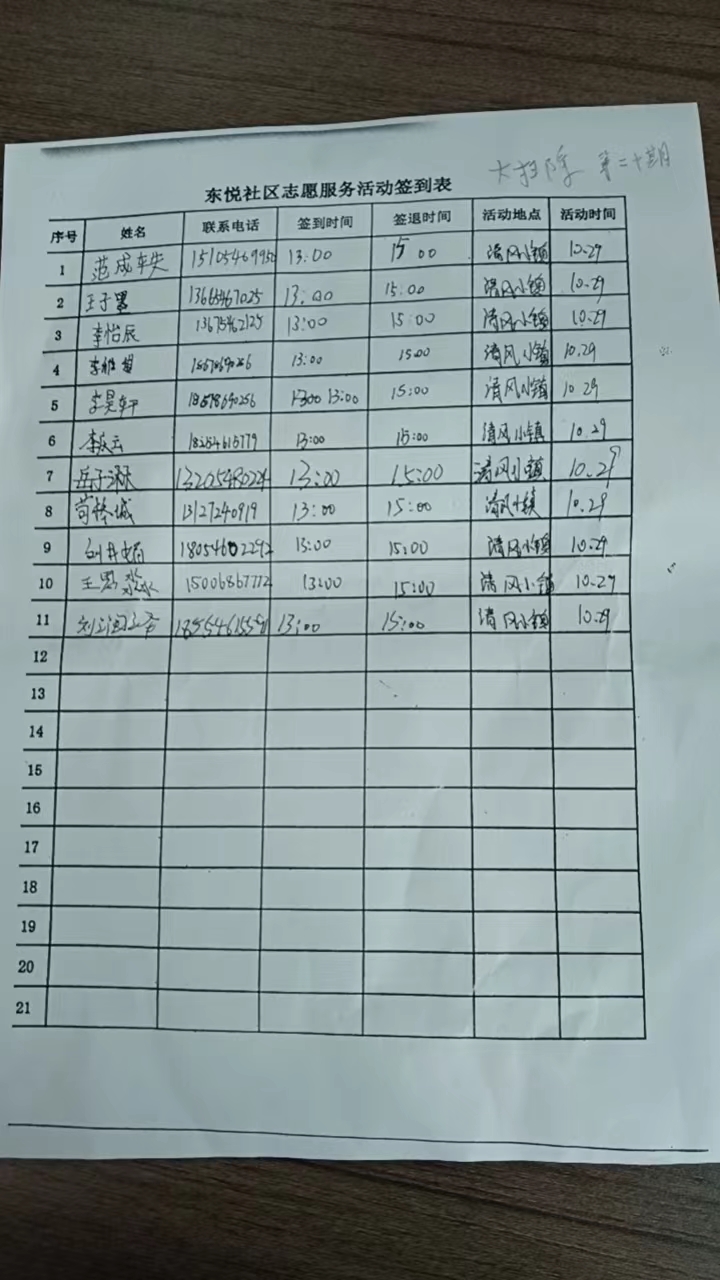 大扫除 第二十期
东悦社区志愿服务活动签到表
序号 姓名 联系电话 签到时间 签退时间 活动地点 活动时间
1 范成轶 13:00 15 00 清风小镇 10.29
2 王子墨 13:00 15:00 清风小镇 10.29
3 李怡辰 13675462125 13:00 15:00 清风小镇 10.29
4 13:00 15:00 清风小镇 10.29
5 李昊轩 18578690256 1300 13:00 15:00 清风小镇 10.29
6 李庆云 18254615779 13:00 15:00 清风小镇 10.29
7 13205480224 13:00 15:00 清风小镇 10.29
8 13127240919 13:00 15:00 清风小镇 10.29
9 18054602292 13:00 15:00 清风小镇 10.29
10 王 15006867772 13:00 15:00 清风小镇 10.29
11 刘 13:00 15:00 清风小镇 10.29
12
13
14
15
16
17
18
19
20
21